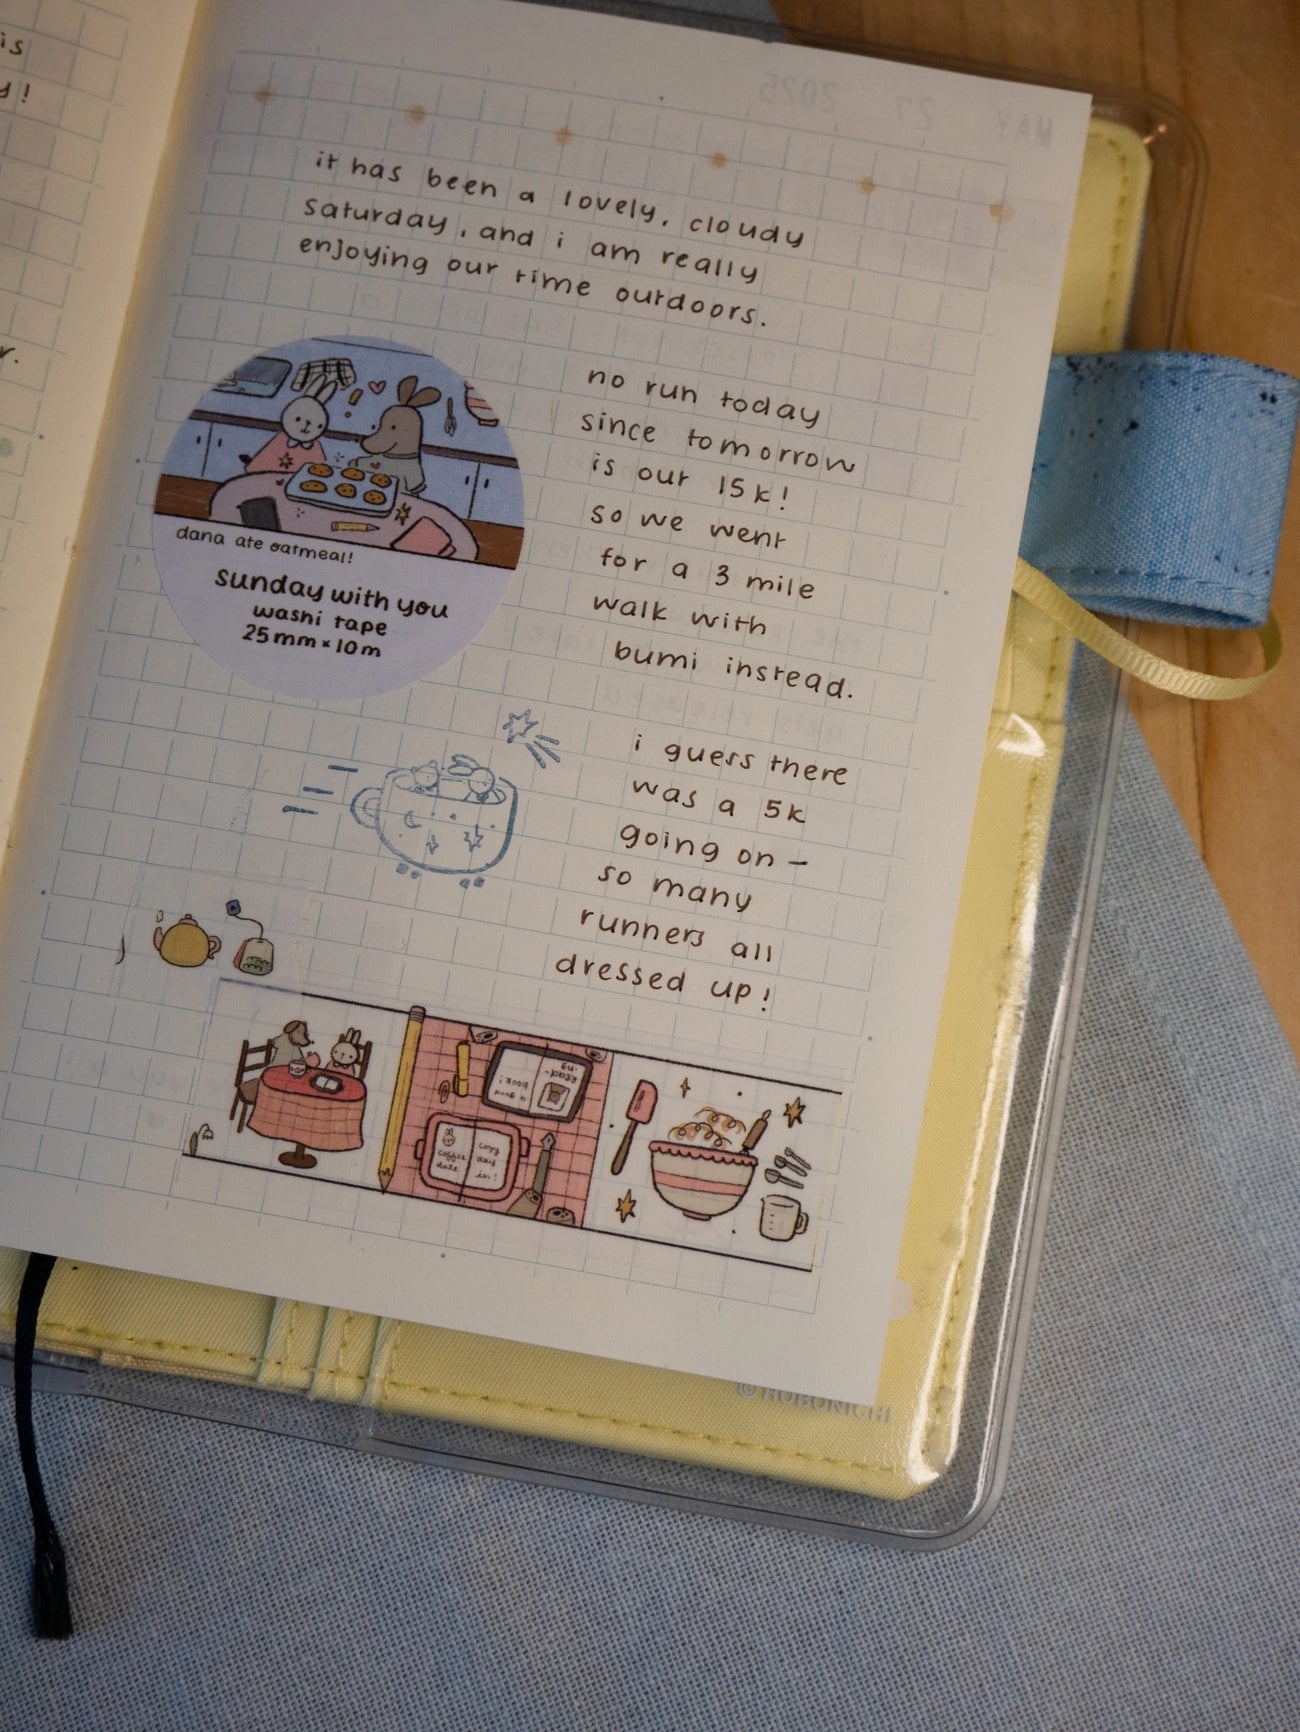 is
y!
r.
it has been a lovely, cloudy
saturday, and i am really
enjoying our time outdoors.
no run today
since tomorrow
is our 15k!
so we went
for a 3 mile
walk with
bumi instead.
i guess there
was a 5k
going on —
so many
runners all
dressed up!
dana ate oatmeal!
sunday with you
washi tape
25mm × 10m
a good
book!
Read-
ing
coffee
date
cozy
day
in!
MAY 27 2025
© HOBONICHI